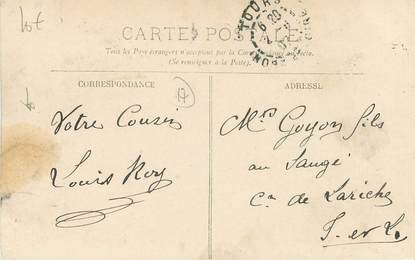 CARTE POSTALE
Tous les Pays étrangers n'acceptent pas la Correspondance au recto.
(Se renseigner à la Poste).
CORRESPONDANCE
ADRESSE
Votre Cousin
Louis Roy
Goyon fils
au Saugé
Cne de Lariche
I. et L.